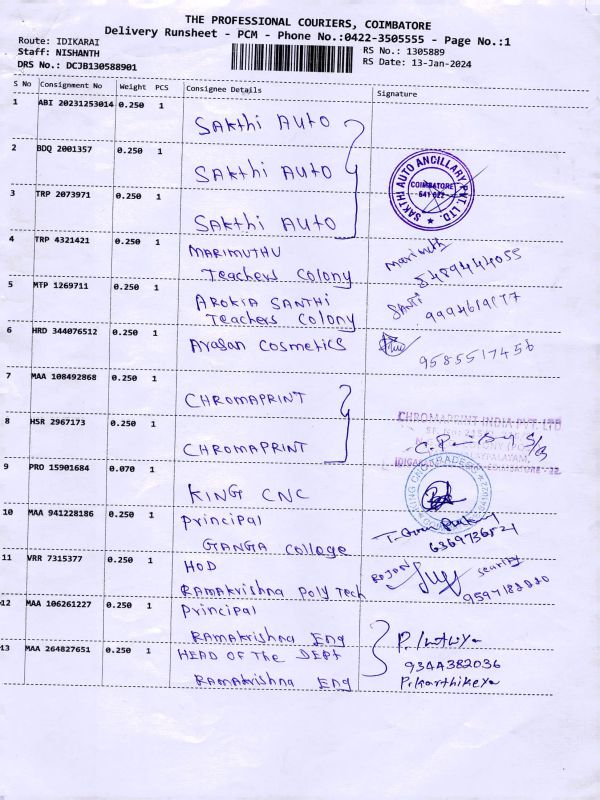 THE PROFESSIONAL COURIERS, COIMBATORE
Delivery Runsheet - PCM - Phone No.:0422-3505555 - Page No.:1
Route: IDIKARAI
RS No.: 1305889
Staff: NISHANTH
RS Date: 13-Jan-2024
DRS No.: DCJB130588901
S No Consignment No Weight PCS Consignee Details Signature
1 ABI 20231253014 0.250 1
Sakthi Auto
2 BDQ 2001357 0.250 1
Sakthi Auto
3 TRP 2073971 0.250 1
Sakthi Auto
SAKTHI AUTO ANCILLARY PVT. LTD.
COIMBATORE
641 022
4 TRP 4321421 0.250 1 MARIMUTHU
Teachers Colony
5 MTP 1269711 0.250 1 AROKIA SANTHI
Teachers Colony
6 HRD 344076512 0.250 1 Arasan Cosmetics
9585517456
7 MAA 108492868 0.250 1
CHROMAPRINT
8 HSR 2967173 0.250 1
CHROMAPRINT
CHROMAPRINT INDIA PVT. LTD
9 PRO 15901684 0.070 1
KING CNC
10 MAA 941228186 0.250 1 Principal
GANGA College
6369736521
11 VRR 7315377 0.250 1 HOD
Ramakrishna Poly Tech
ROJAN
12 MAA 106261227 0.250 1 Principal
Ramakrishna Eng
13 MAA 264827651 0.250 1 HEAD OF The DEPT
Ramakrishna Eng
9344382036
P.Karthikeya